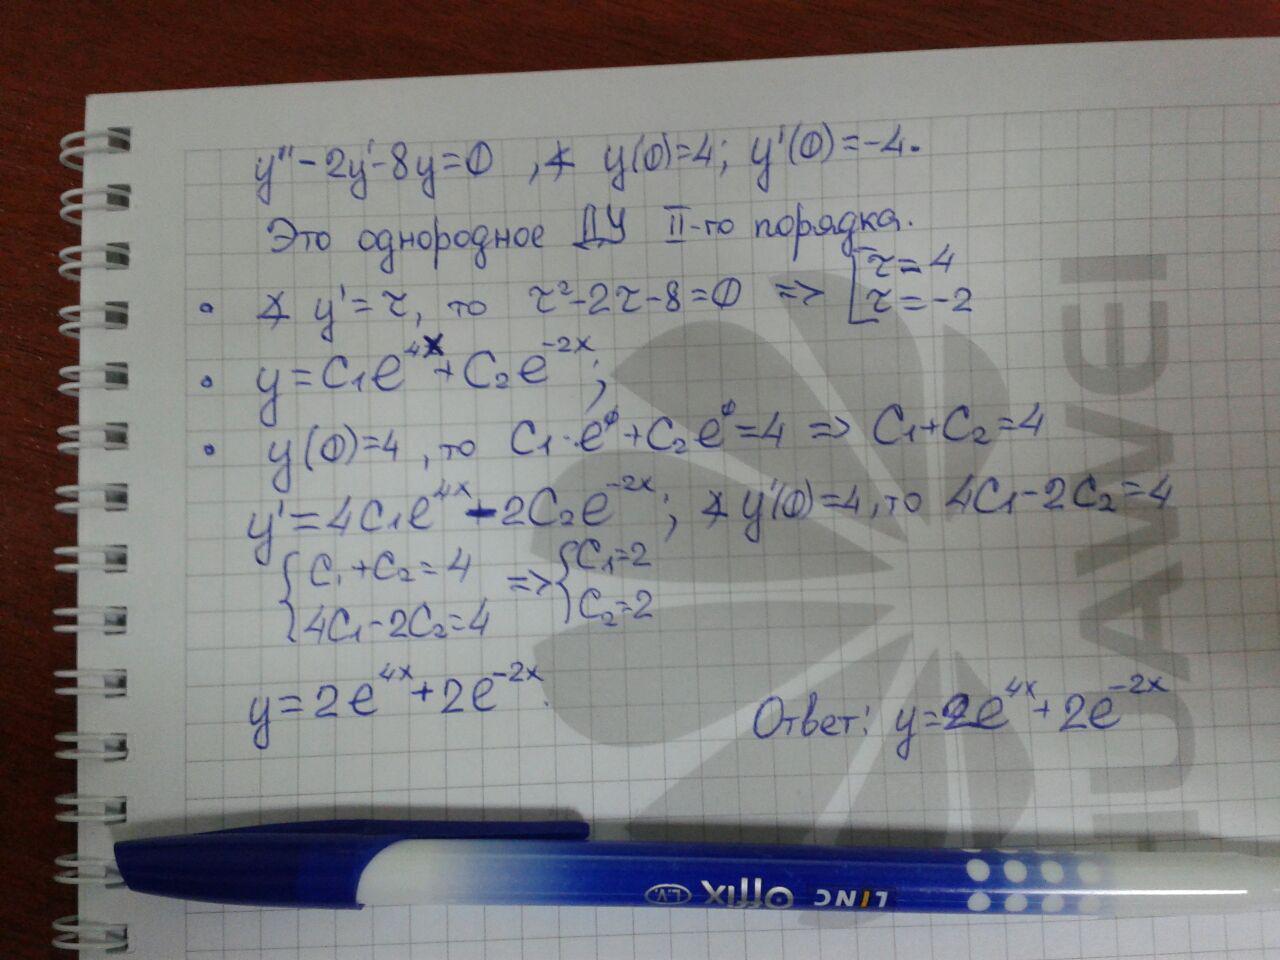 y'' - 2y' - 8y = 0 , ∡ y(0)=4; y'(0)=-4.
Это однородное ДУ II-го порядка.
• ∡ y' = τ, то τ² - 2τ - 8 = 0 => [τ = 4
τ = -2
• y = C₁e^4x + C₂e^-2x;
• y(0)=4, то C₁·e⁰ + C₂e⁰ = 4 => C₁+C₂=4
y' = 4C₁e^4x - 2C₂e^-2x; ∡ y'(0)=4, то 4C₁-2C₂=4
{C₁+C₂=4 => {C₁=2
4C₁-2C₂=4 C₂=2
y = 2e^4x + 2e^-2x.
Ответ: y = 2e^4x + 2e^-2x
HUAWEI
LINC offix L.V.